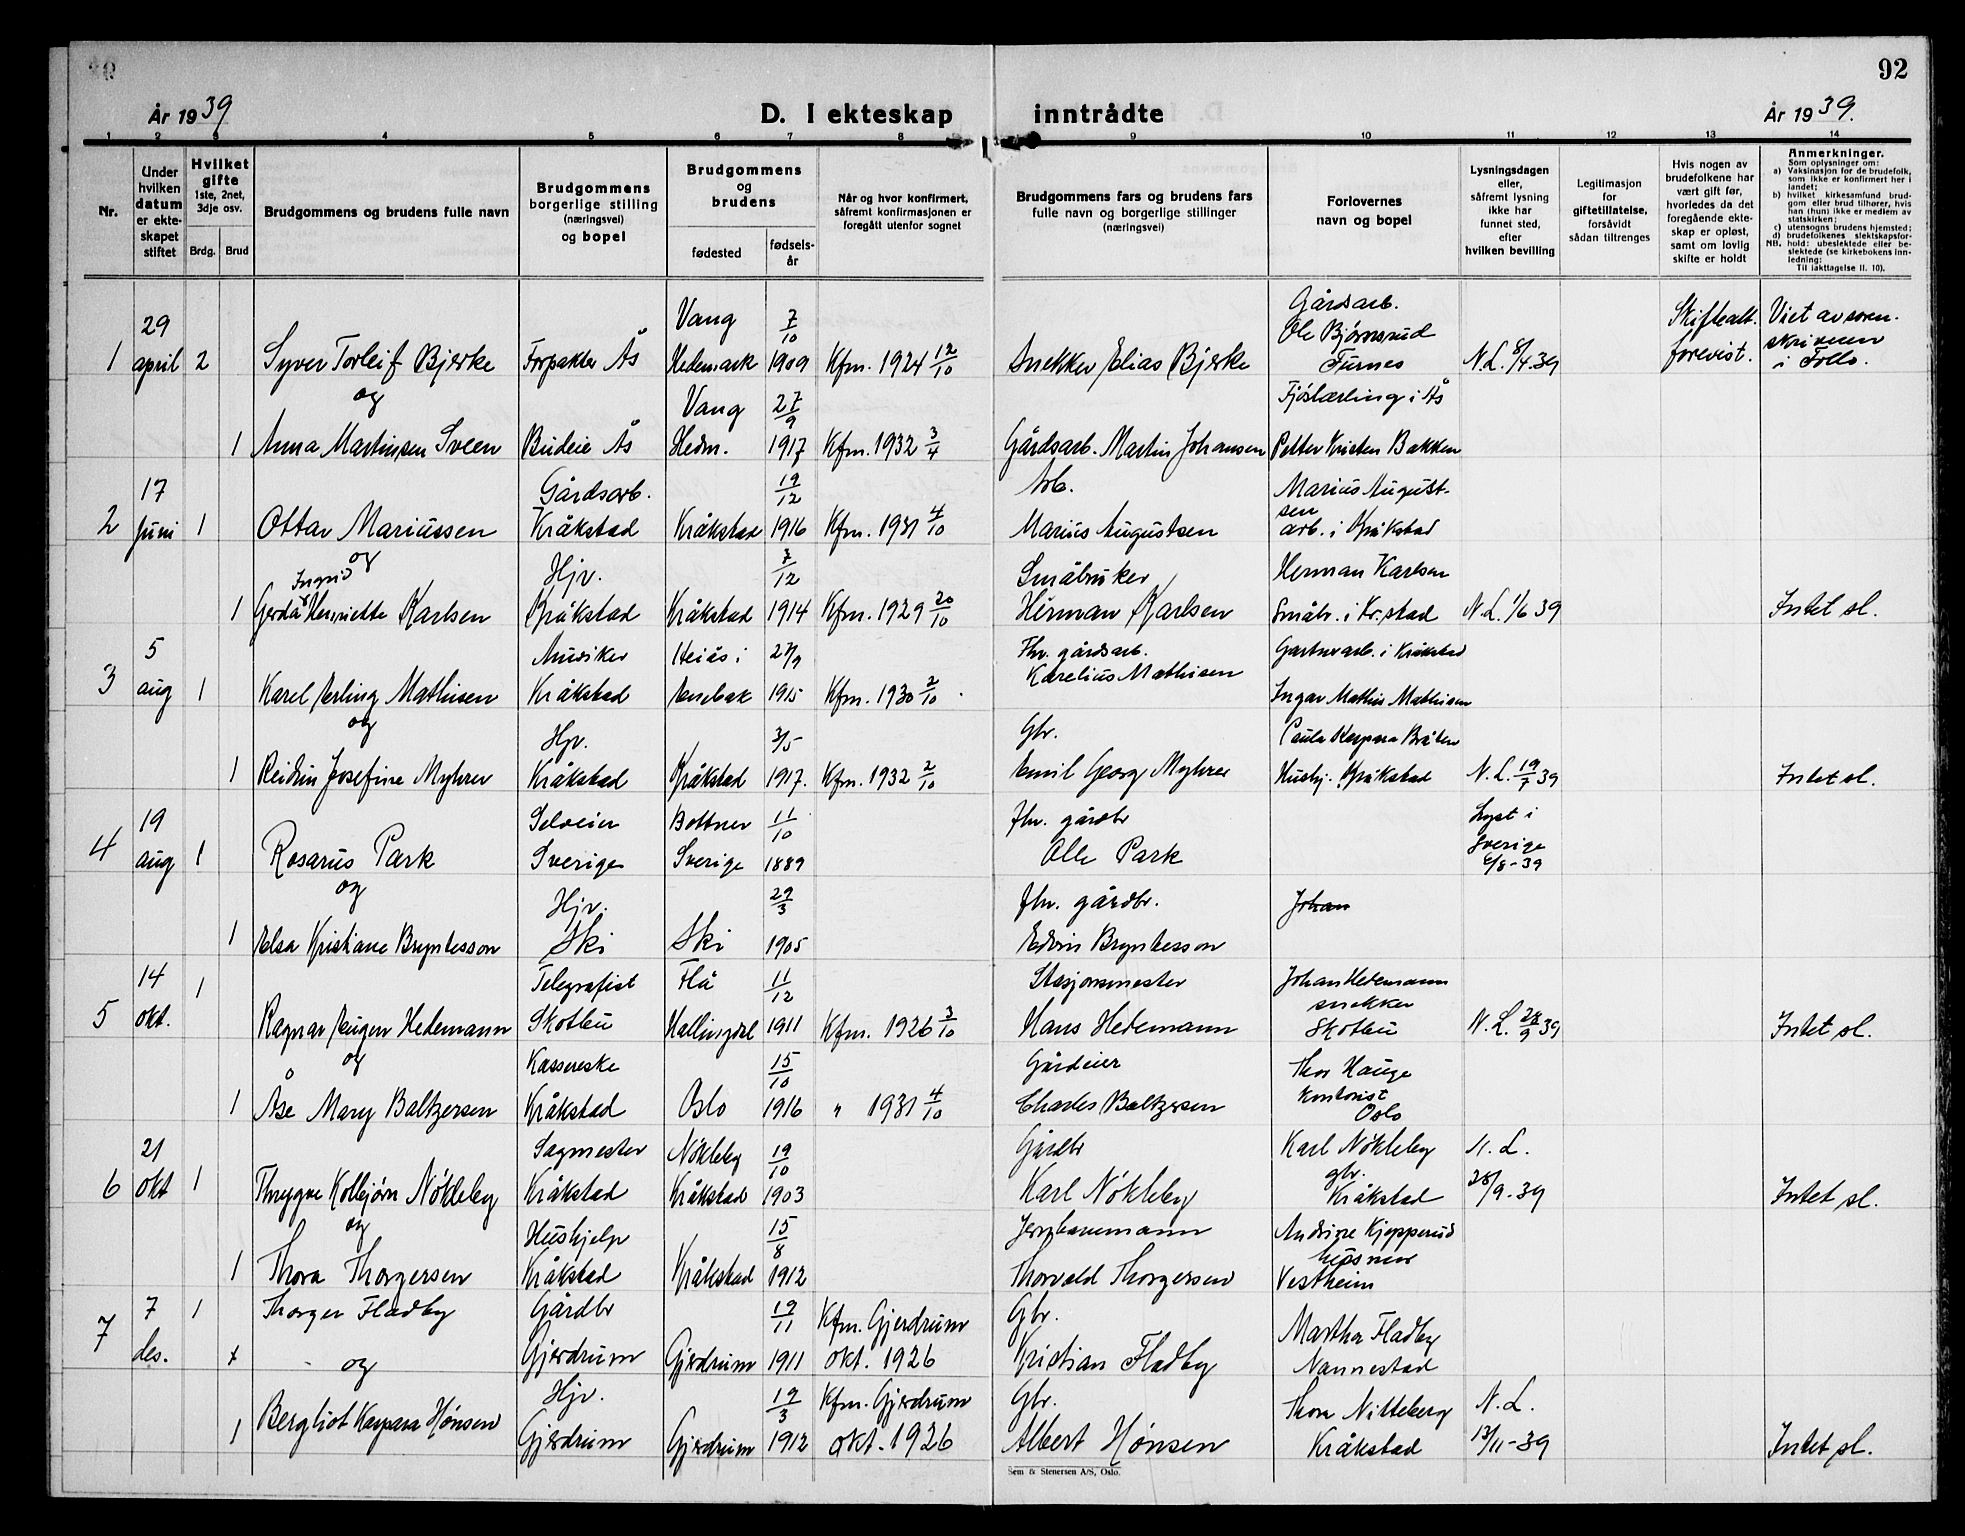 92
År 1939
D. I ekteskap inntrådte
År 1939.
1 2 3 4 5 6 7 8 9 10 11 12 13 14
Nr.
Under hvilken datum er ekte-skapet stiftet
Hvilket gifte 1ste, 2net, 3dje osv.
Brdg. Brud
Brudgommens og brudens fulle navn
Brudgommens borgerlige stilling (næringsvei) og bopel
Brudgommens og brudens
fødested
fødsels-år
Når og hvor konfirmert, såfremt konfirmasjonen er foregått utenfor sognet
Brudgommens fars og brudens fars fulle navn og borgerlige stillinger (næringsvei)
Forlovernes navn og bopel
Lysningsdagen eller, såfremt lysning ikke har funnet sted, efter hvilken bevilling
Legitimasjon for giftetillatelse, forsåvidt sådan tiltrenges
Hvis nogen av brudefolkene har vært gift før, hvorledes da det foregående ekte-skap er opløst, samt om lovlig skifte er holdt
Anmerkninger.
Som oplysninger om:
a) Vaksinasjon for de brudefolk, som ikke er konfirmert her i landet;
b) hvilket kirkesamfund brud-gom eller brud tilhører, hvis han (hun) ikke er medlem av statskirken;
c) utensogns brudens hjemsted;
d) brudefolkenes slektskapsfor-hold: ubeslektede eller be-slektede (se kirkebokens inn-ledning:
NB. Til iakttagelse II. 10).
1 29 april 2 Syver Torleif Bjerke Forpakter Ås Vang Hedemark 7/10 1909 Kfm. 1924 12/10 Snekker Elias Bjerke Gårdsarb. Ole Bjørnsrud Furnes N.L. 8/4-39 Skifteatt. forevist. Viet av soren-skriveren i Follo.
og
1 Anna Martinsen Sveen Budeie Ås Vang Hedm. 27/9 1917 Kfm. 1932 3/4 Gårdsarb. Martin Johansen Fjøslærling i Ås Petter Kristen Bakken
2 17 Juni 1 Ottar Mariussen Gårdsarb. Kråkstad Kråkstad 19/12 1916 Kfm. 1931 4/10 Arb. Marius Augustsen Marius August-sen arb. i Kråkstad
og
1 Gerda Ingrid Henriette Karlsen Hjv. Kråkstad Kråkstad 7/12 1914 Kfm. 1929 20/10 Småbruker Herman Karlsen Herman Karlsen Småbr. i Kr.stad N.L. 1/6 39 Intet sl.
3 5 aug 1 Karel Erling Mathisen Musiker Kråkstad Heiås i Enebak 27/9 1915 Kfm. 1930 2/10 Fhv. gårdsarb. Karelius Mathisen Gartnerarb. i Kråkstad Ingar Mathis Mathisen
og
1 Reidun Josefine Myhrer Hjv. Kråkstad Kråkstad 3/5 1917. Kfm. 1932 2/10 Gbr. Emil Georg Myhrer Paula Kaspara Bråten Hushj. Kråkstad N.L. 19/7 39 Intet sl.
4 19 aug 1 Rosarus Park Selveier Sverige Bottner Sverige 11/10 1889 fhv. gårdbr Olle Park Lyst i Sverige 6/8-39
og
1 Elsa Kristiane Bryntesson Hjv. Ski Ski 29/3 1905 fhv. gårdbr. Edvin Bryntesson Johan
5 14 okt. 1 Ragnar Eugen Hedemann Telegrafist Skotbu Flå Hallingdal 11/12 1911 Kfm. 1926 3/10 Stasjonsmester Hans Hedemann Johan Hedemann snekker Skotbu N.L. 28/9 39 Intet sl.
og
1 Åse Mary Baltzersen Kassereske Kråkstad Oslo 15/10 1916 " 1931 4/10 Gårdeier Charles Baltzersen Thor Hauge Kontorist Oslo
6 21 okt 1 Thrygve Kolbjørn Nökleby Sagmester Kråkstad Nökleby Kråkstad 19/10 1903 Gårdbr Karl Nökleby Karl Nökleby gbr. Kråkstad N.L. 28/9-39 Intet sl.
og
1 Thora Thorgersen Hushjelp Kråkstad Kråkstad 15/8 1912 Jernbanemann Thorvald Thorgersen Andrine Kjopperud husmor Vestheim
7 7 des. 1 Thorger Fladby Gårdbr Gjerdrum Gjerdrum 19/11 1911 Kfm. Gjerdrum okt. 1926 Gbr. Kristian Fladby Martha Fladby Nannestad
og
1 Bergliot Kaspara Hönsen Hjv. Gjerdrum Gjerdrum 19/3 1912 Kfm. Gjerdrum okt. 1926 Gbr. Albert Hönsen Thora Nitteberg Kråkstad N.L. 13/11-39 Intet sl.
Sem & Stenersen A/S, Oslo.